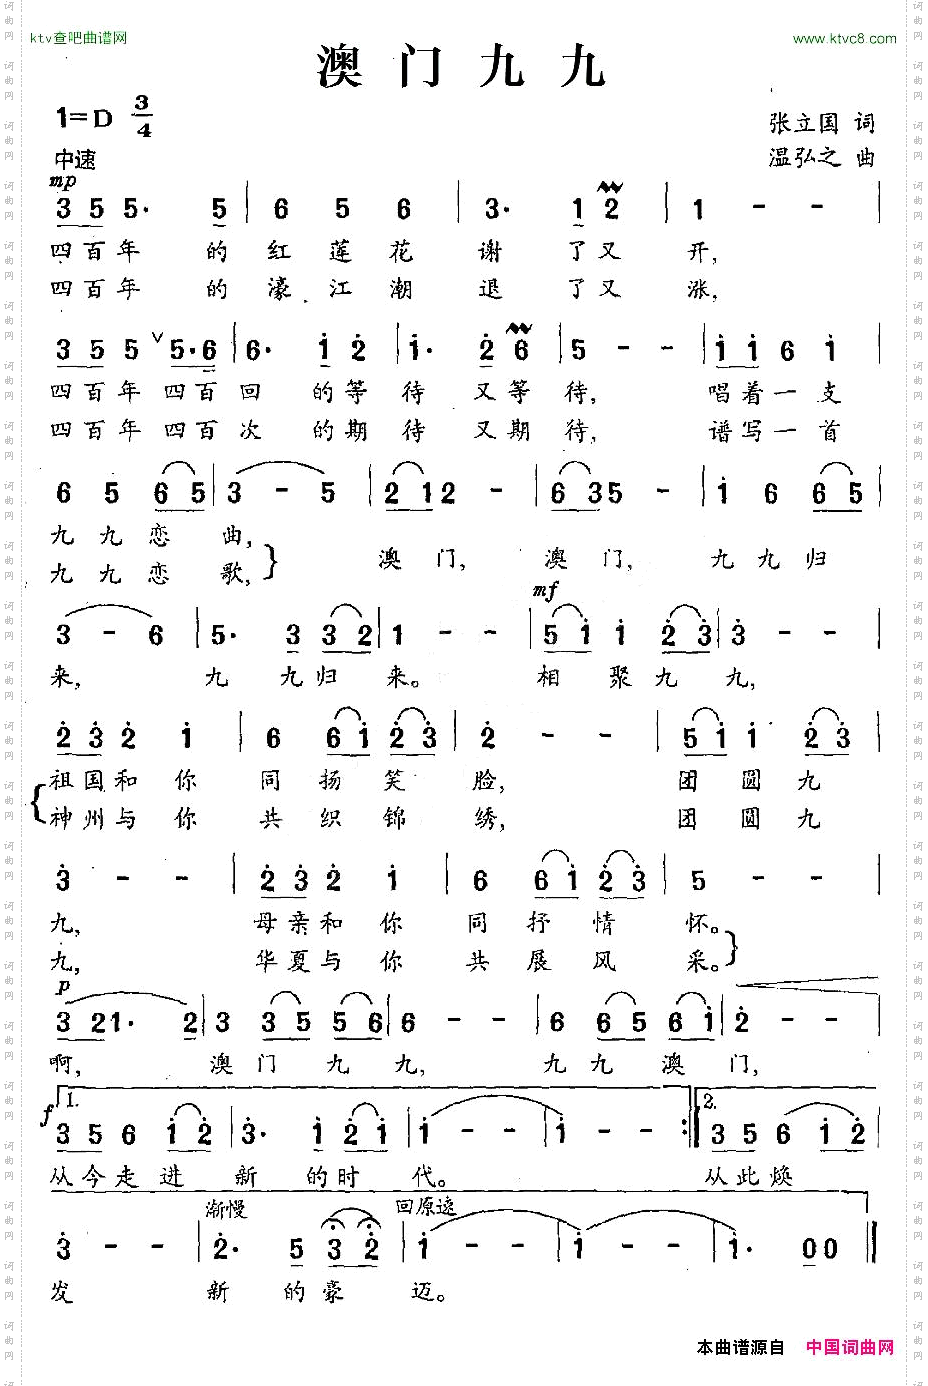 ktv查吧曲谱网
www.ktvc8.com
澳门九九
1=D 3/4
张立国 词
中速
温弘之 曲
mp
3 5 5· 5 | 6 5 6 | 3· 1 2 | 1 - - |
四百年 的红莲花 谢 了又 开,
四百年 的濠江潮 退 了又 涨,
3 5 5 5·6 | 6· 1 2 | 1· 2 6 | 5 - - | 1 1 6 1 |
四百年 四百回 的等待 又等待, 唱着一支
四百年 四百次 的期待 又期待, 谱写一首
6 5 6 5 | 3 - 5 | 2 1 2 - | 6 3 5 - | 1 6 6 5 |
九九恋 曲,
九九恋 歌, 澳门, 澳门, 九九归
mf
3 - 6 | 5· 3 3 2 | 1 - - | 5 1 1 2 3 | 3 - - |
来, 九 九归 来。 相聚九 九,
2 3 2 1 | 6 6 1 2 3 | 2 - - | 5 1 1 2 3 |
祖国和你 同扬笑 脸, 团圆九
神州与你 共织锦 绣, 团圆九
3 - - | 2 3 2 1 | 6 6 1 2 3 | 5 - - |
九, 母亲和你 同抒情 怀。
九, 华夏与你 共展风 采。
p
3 2 1· 2 | 3 3 5 5 6 | 6 - - | 6 6 5 6 1 | 2 - - |
啊, 澳门九 九, 九九澳 门,
f 1. 2.
3 5 6 1 2 | 3· 1 2 1 | 1 - - | 1 - - :| 3 5 6 1 2 |
从今走进 新 的时 代。 从此焕
渐慢 回原速
3 - - | 2· 5 3 2 | 1 - - | 1 - - | 1 - - | 1· 0 0 ||
发 新 的豪 迈。
本曲谱源自 中国词曲网